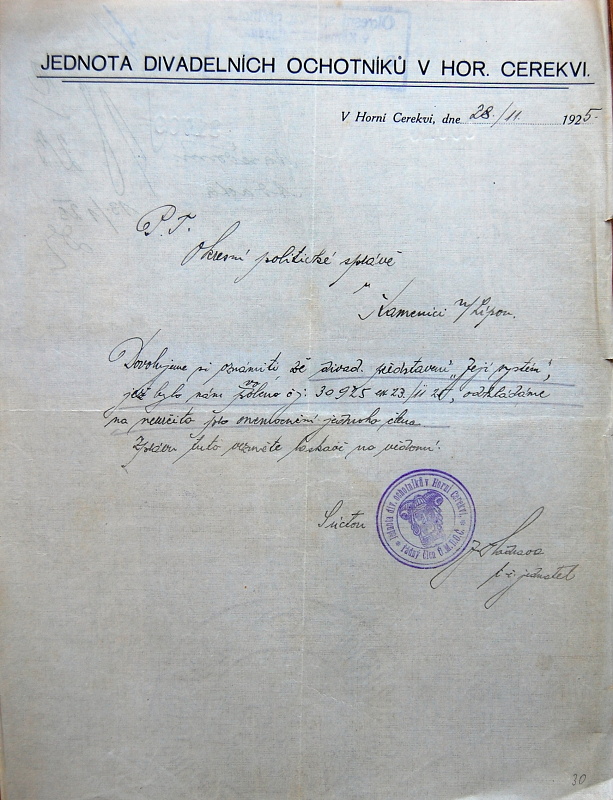 JEDNOTA DIVADELNÍCH OCHOTNÍKŮ V HOR. CEREKVI.
V Horní Cerekvi, dne 28./11. 1925.
P. T.
Okresní politické správě
v
Kamenici n/Lipou.
Dovolujeme si oznámiti že divad. představení „Její systém“,
jež bylo nám povoleno čj: 30925 ex 23./11 25, odkládáme
na neurčito pro onemocnění jednoho člena
Zprávu tuto vezměte laskavě na vědomí.
S úctou
Jednota div. ochotníků v Horní Cerekvi,
řádný člen Ú.M.D.O.Č.
t. č. jednatel
30